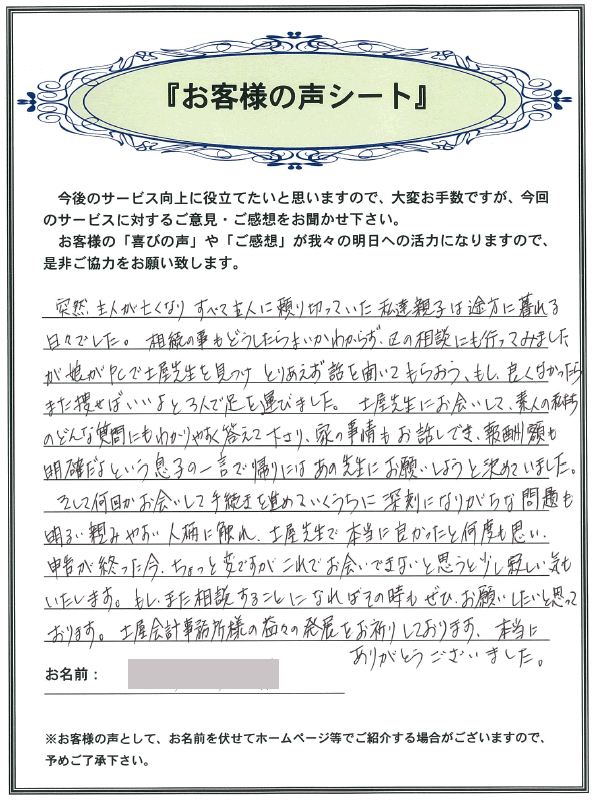 『お客様の声シート』
今後のサービス向上に役立てたいと思いますので、大変お手数ですが、今回
のサービスに対するご意見・ご感想をお聞かせ下さい。
お客様の「喜びの声」や「ご感想」が我々の明日への活力になりますので、
是非ご協力をお願い致します。
突然、主人が亡くなり すべて主人に頼り切っていた私達親子は途方に暮れる
日々でした。 相続の事もどうしたらよいかわからず、区の相談にも行ってみました
が娘がPCで土屋先生を見つけ とりあえず話を聞いてもらおう、もし、良くなかったら
また捜せばいいよと3人で足を運びました。 土屋先生にお会いして、素人の私たち
のどんな質問にもわかりやすく答えて下さり、家の事情もお話しでき、報酬額も
明確だよという息子の一言で帰りにはあの先生にお願いしようと決めていました。
そして何回かお会いして手続きを進めていくうちに 深刻になりがちな問題も
明るい親みやすい人柄に触れ、土屋先生で本当に良かったと何度も思い、
申告が終った今、ちょっと変ですがこれでお会いできないと思うと少し寂しい気も
いたします。もし、また相談することになればその時もぜひ、お願いしたいと思って
おります。 土屋会計事務所様の益々の発展をお祈りしております、 本当に
ありがとうございました。
お名前：
※お客様の声として、お名前を伏せてホームページ等でご紹介する場合がございますので、
予めご了承下さい。